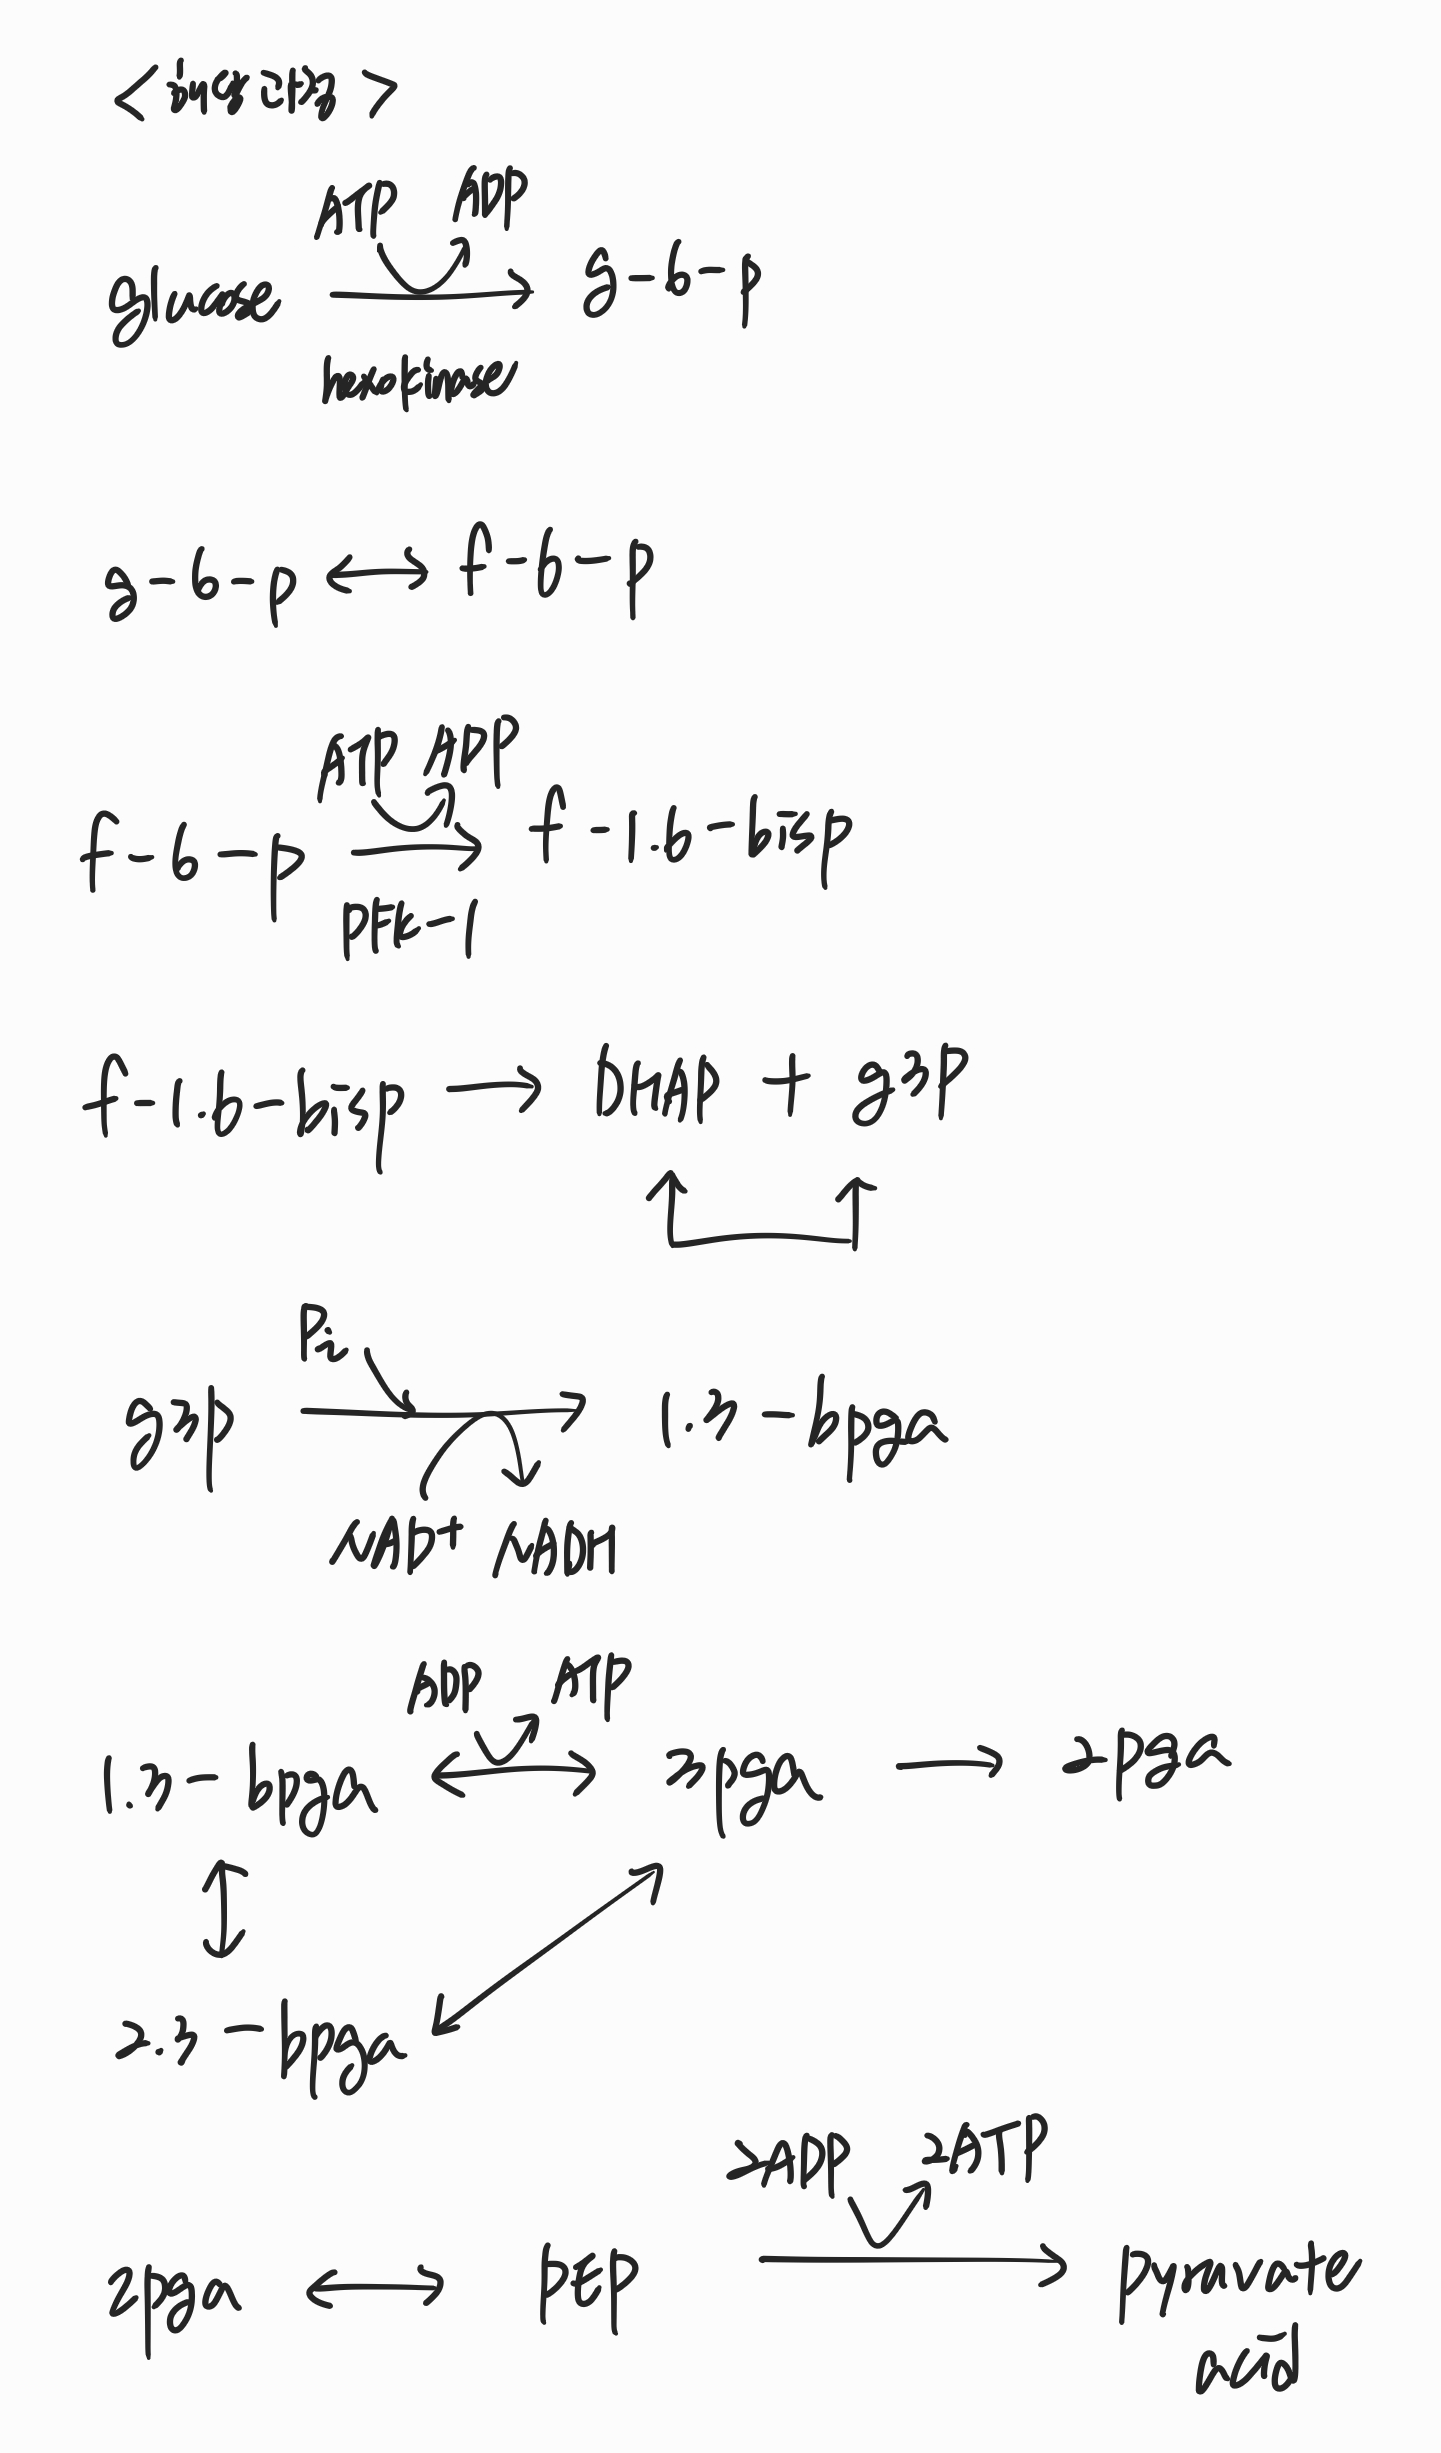 <해당과정>
ATP ADP
glucose → g-6-p
hexokinase
g-6-p ↔ f-6-p
ATP ADP
f-6-p → f-1.6-bisp
PFK-1
f-1.6-bisp → DHAP + g3p
Pi
g3p → 1.3-bpga
NAD+ NADH
ADP ATP
1.3-bpga ↔ 3pga → 2pga
2.3-bpga
2ADP 2ATP
2pga ↔ PEP → pyravate
acid